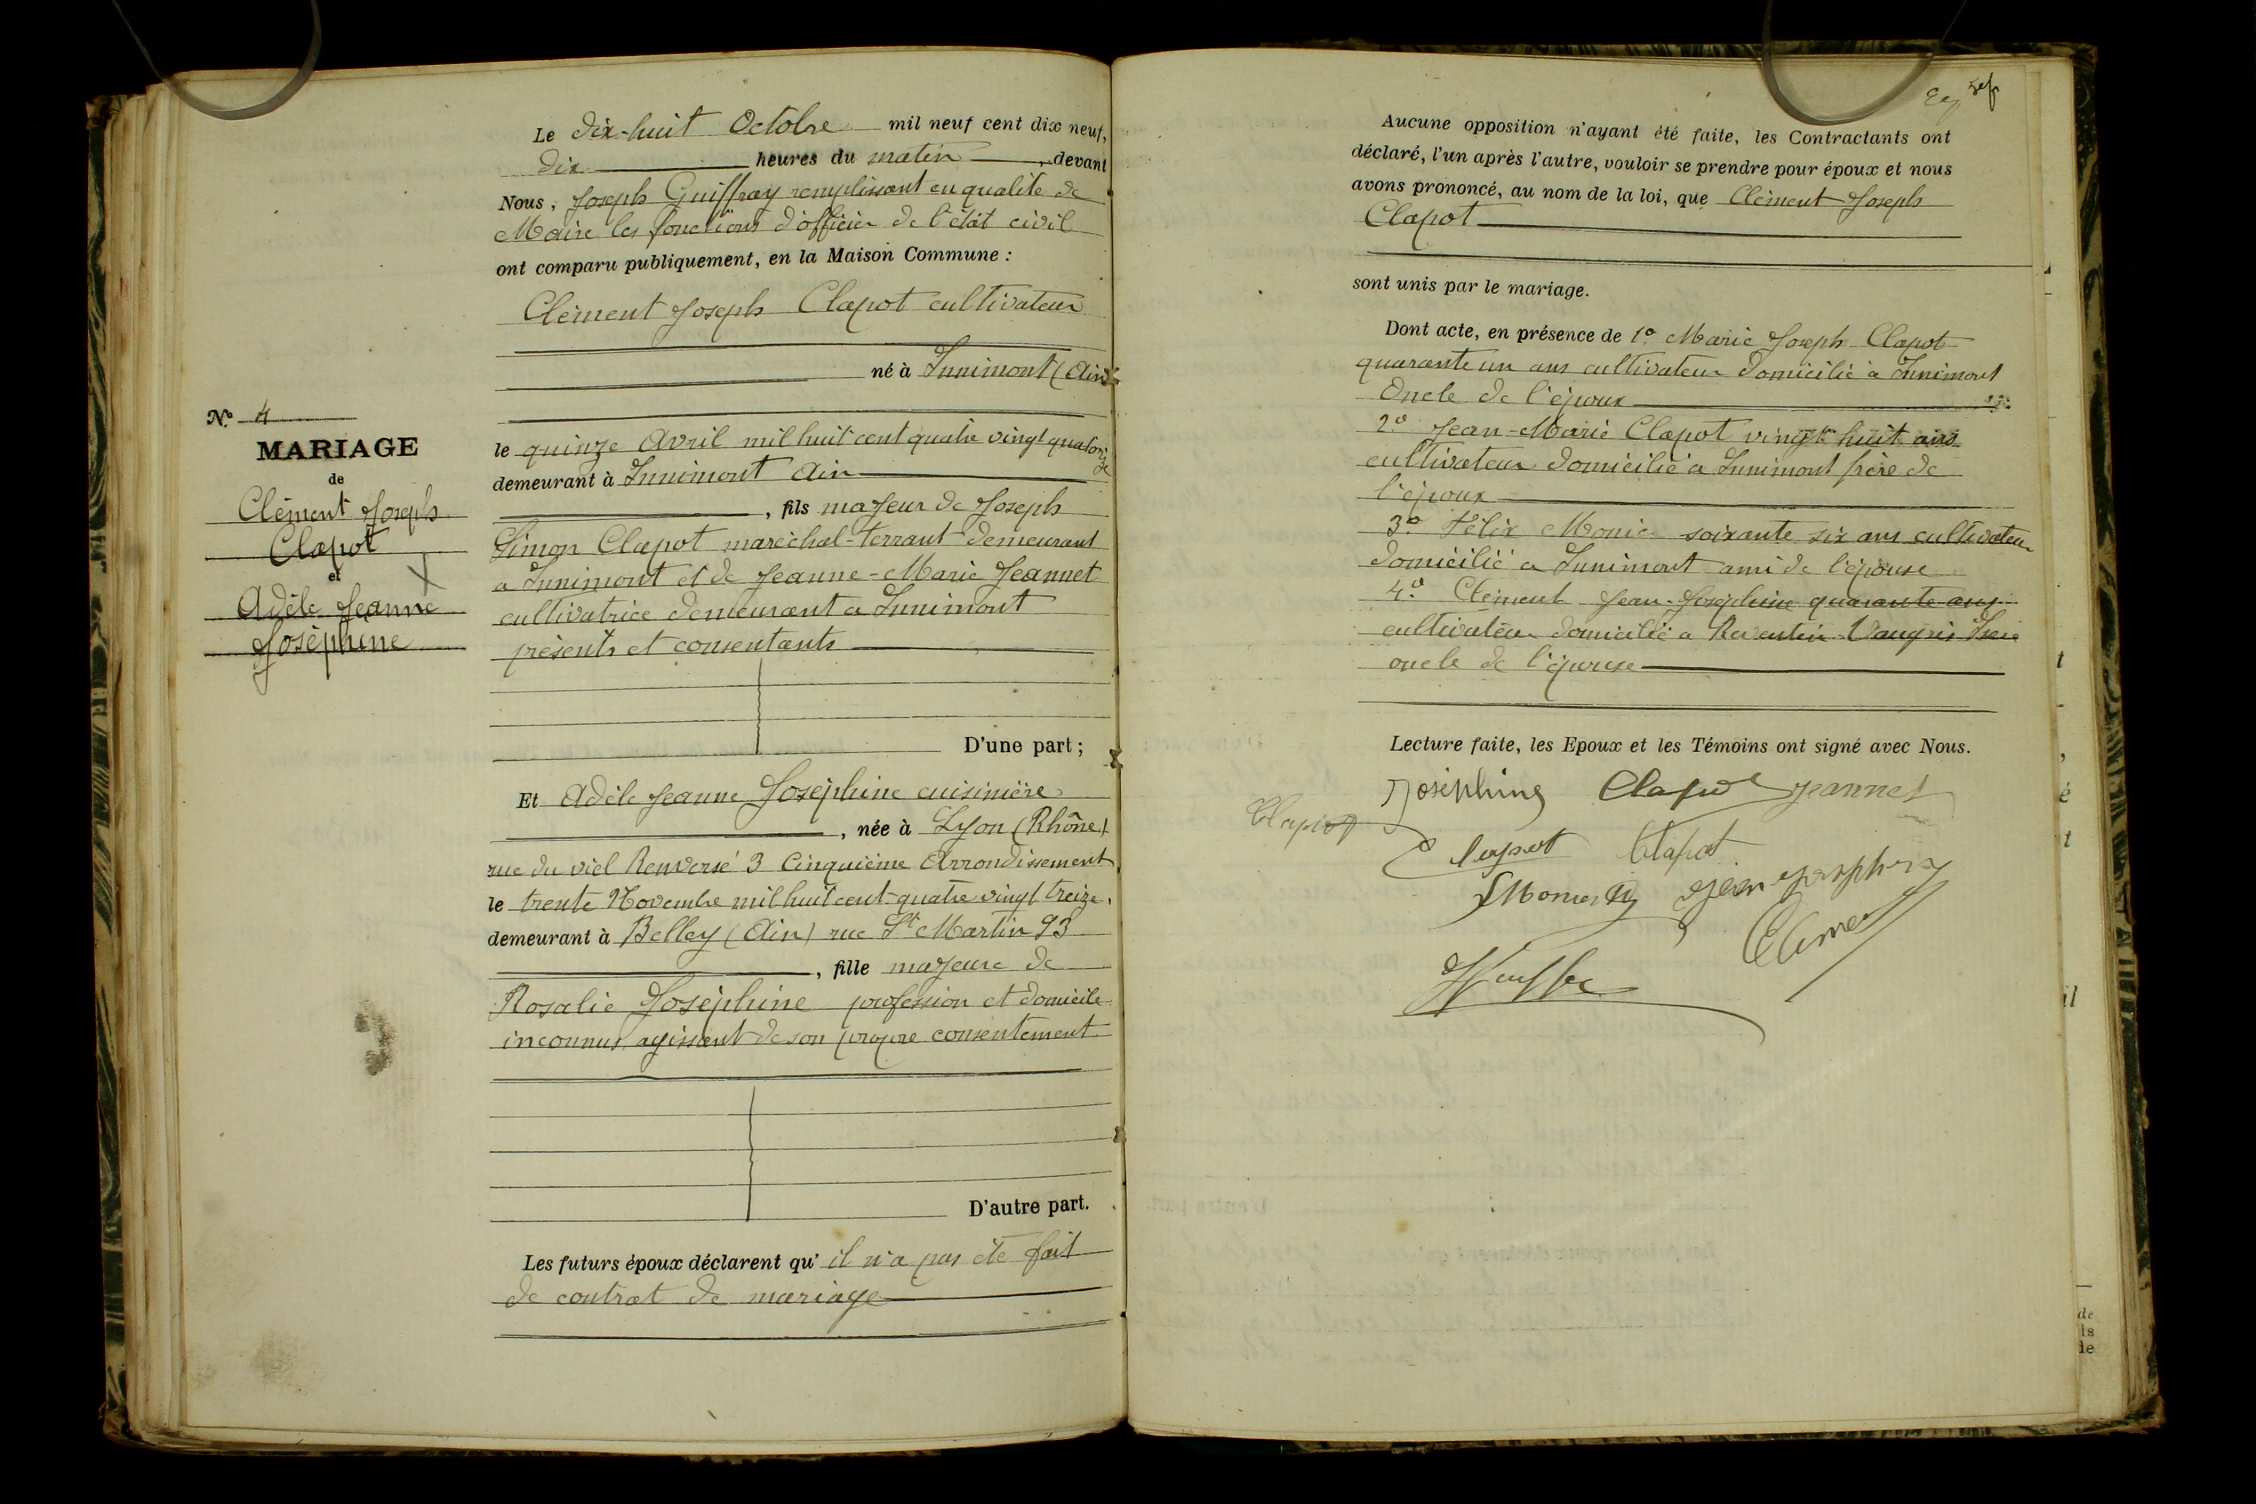 Le dix-huit Octobre mil neuf cent dix neuf,
dix heures du matin, devant
Nous, Joseph Guiffray remplissant en qualité de
Maire les fonctions d'officier de l'état civil
ont comparu publiquement, en la Maison Commune :
Clément Joseph Clapot cultivateur
né à Innimont (Ain)
le quinze Avril mil huit cent quatre vingt quatorze
demeurant à Innimont Ain
, fils majeur de Joseph
Simon Clapot maréchal-ferrant demeurant
à Innimont et de Jeanne-Marie Jeannet
cultivatrice demeurant à Innimont
présents et consentants
D'une part ;
Et Adèle Jeanne Joséphine cuisinière
, née à Lyon (Rhône)
rue du viel Renversé 3 Cinquième Arrondissement
le trente Novembre mil huit cent quatre vingt treize,
demeurant à Belley (Ain) rue St Martin 93
, fille majeure de
Rosalie Joséphine profession et domicile
inconnus agissant de son propre consentement
D'autre part.
Les futurs époux déclarent qu'il n'a pas été fait
de contrat de mariage
No. 4
MARIAGE
de
Clément Joseph
Clapot
et
Adèle Jeanne
Joséphine
Aucune opposition n'ayant été faite, les Contractants ont
déclaré, l'un après l'autre, vouloir se prendre pour époux et nous
avons prononcé, au nom de la loi, que Clément Joseph
Clapot
sont unis par le mariage.
Dont acte, en présence de 1o. Marie Joseph Clapot
quarante un ans cultivateur domicilié à Innimont
Oncle de l'époux
2o. Jean-Marie Clapot vingt huit ans
cultivateur domicilié à Innimont frère de
l'époux
3o. Félix Monie soixante six ans cultivateur
domicilié à Innimont ami de l'épouse
4o. Clément Jean-Joséphine quarante ans
cultivateur domicilié à Reventin-Vaugris Isère
oncle de l'épouse
Lecture faite, les Epoux et les Témoins ont signé avec Nous.
Joséphine Clapot Jeannet
Clapot
Clapot Clapot
Jean Joséphine